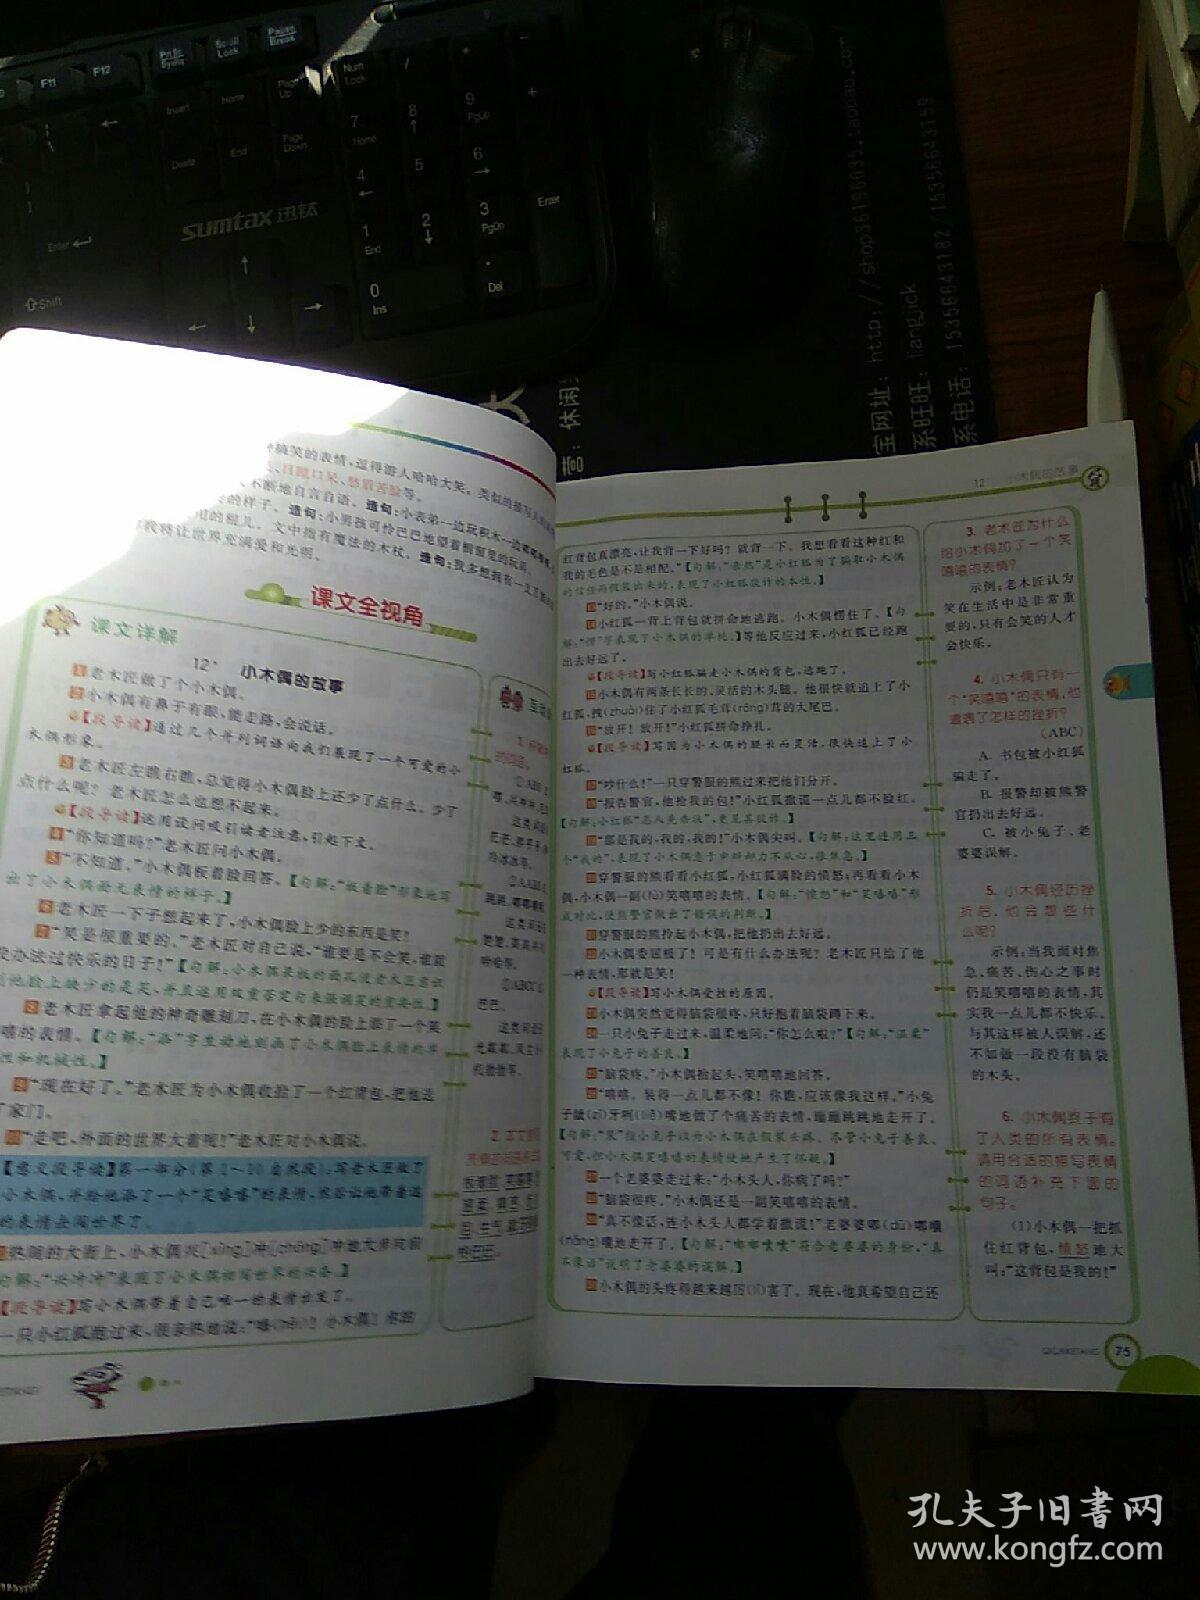 F11
F12
Prt Sc
SysRq
Scroll
Lock
Pause
Break
Insert
Home
Page
Up
Num
Lock
Delete
End
Page
Down
7
Home
8
9
PgUp
4
5
6
1
End
2
3
PgDn
Enter
0
Ins
Del
Enter
Shift
sumtax 迅钛
宝网址: http://shop36196035.taobao.com/
系旺旺: liangjick
系电话: 15356643182/15356643159
营: 休闲
搞笑的表情,逗得游人哈哈大笑。类似的描写人
、目瞪口呆、愁眉苦脸等。
、不断地自言自语。造句:小表弟一边玩积木一边嘟嘟囔囔
的样子。造句:小男孩可怜巴巴地望着橱窗里的玩具。
用的棍儿。文中指有魔法的木杖。造句:我多想拥有一支万能
我将让世界充满爱和光明。
课文全视角
课文详解
12* 小木偶的故事
1老木匠做了个小木偶。
2小木偶有鼻子有眼,能走路,会说话。
【段导读】通过几个并列词语向我们展现了一个可爱的小
木偶形象。
3老木匠左瞧右瞧,总觉得小木偶脸上还少了点什么。少了
点什么呢?老木匠怎么也想不起来。
【段导读】这用设问吸引读者注意,引起下文。
4“你知道吗?”老木匠问小木偶。
5“不知道。”小木偶板着脸回答。【句解:“板着脸”形象地写
出了小木偶面无表情的样子。】
6老木匠一下子想起来了,小木偶脸上少的东西是笑!
7“笑是很重要的。”老木匠对自己说,“谁要是不会笑,谁就
没办法过快乐的日子!”【句解:小木偶呆板的面孔使老木匠意识
到他脸上缺少的是笑,并且运用双重否定句来强调笑的重要性。】
8老木匠拿起他的神奇雕刻刀,在小木偶的脸上添了一个笑
嘻的表情。【句解:“添”字生动地刻画了小木偶脸上表情的单
性和机械性。】
9“现在好了。”老木匠为小木偶收拾了一个红背包,把他送
了家门。
10“走吧,外面的世界大着呢!”老木匠对小木偶说。
【意义段导读】第一部分(第1~10自然段):写老木匠做了
小木偶,并给他添了一个“笑嘻嘻”的表情,然后让他带着这
的表情去闯世界了。
热闹的大街上,小木偶兴[xìng]冲[chōng]冲地大步向前
句解:“兴冲冲”表现了小木偶
【段导读】写小木偶带着自己唯一的表情出发了。
一只小红狐跑过来,很亲热地说:“嗨(hēi)!小木偶!你的
12 小木偶的故事
红背包真漂亮,让我背一下好吗?就背一下。我想看看这种红和
我的毛色是不是相配。”【句解:“亲热”是小红狐为了骗取小木偶
的信任而假装出来的,表现了小红狐狡诈的本性。】
“好的。”小木偶说。
小红狐一背上背包就拼命地逃跑。小木偶愣住了。【句
解:“愣”字表现了小木偶的单纯。】等他反应过来,小红狐已经跑
出去好远了。
【段导读】写小红狐骗走小木偶的背包,逃跑了。
小木偶有两条长长的、灵活的木头腿。他很快就追上了小
红狐,拽(zhuài)住了小红狐毛茸(róng)茸的大尾巴。
“放开!放开!”小红狐拼命挣扎。
【段导读】写因为小木偶的腿长而灵活,很快追上了小
红狐。
“吵什么!”一只穿警服的熊过来把他们分开。
“报告警官,他抢我的包!”小红狐撒谎一点儿都不脸红。
【句解:小红狐“恶人先告状”,更见其狡诈。】
“那是我的,我的,我的!”小木偶尖叫。【句解:这里连用三
个“我的”,表现了小木偶急于申辩却力不从心、很焦急。】
穿警服的熊看看小红狐,小红狐满脸的愤怒;再看看小木
偶,小木偶一副(fù)笑嘻嘻的表情。【句解:“愤怒”和“笑嘻嘻”形
成对比,使熊警官做出了错误的判断。】
穿警服的熊拎起小木偶,把他扔出去好远。
小木偶委屈极了!可是有什么办法呢?老木匠只给了他
一种表情,那就是笑!
【段导读】写小木偶受挫的原因。
小木偶突然觉得脑袋很疼,只好抱着脑袋蹲下来。
一只小兔子走过来,温柔地问:“你怎么啦?”【句解:“温柔”
表现了小兔子的善良。】
“脑袋疼。”小木偶抬起头,笑嘻嘻地回答。
“嘻嘻,装得一点儿都不像!你瞧,应该像我这样。”小兔
子龇(zī)牙咧(liě)嘴地做了个痛苦的表情,蹦蹦跳跳地走开了。
【句解:“装”指小兔子以为小木偶在假装头疼。尽管小兔子善良、
可爱,但小木偶笑嘻嘻的表情使他产生了怀疑。】
一个老婆婆走过来:“小木头人,你病了吗?”
“脑袋很疼。”小木偶还是一副笑嘻嘻的表情。
“真不像话,连小木头人都学着撒谎!”老婆婆嘟(dū)嘟囔
(nāng)囔地走开了。【句解:“嘟嘟囔囔”符合老婆婆的身份,“真
不像话”说明了老婆婆的误解。】
小木偶的头疼得越来越厉(lì)害了。现在,他真希望自己还
3. 老木匠为什么
给小木偶加了一个笑
嘻嘻的表情?
示例:老木匠认为
笑在生活中是非常重
要的,只有会笑的人才
会快乐。
4. 小木偶只有一
个“笑嘻嘻”的表情,他
遭遇了怎样的挫折?
(ABC)
A. 书包被小红狐
骗走了。
B. 报警却被熊警
官扔出去好远。
C. 被小兔子、老
婆婆误解。
5. 小木偶经历挫
折后,他会想些什
么呢?
示例:当我面对焦
急、痛苦、伤心之事时
仍是笑嘻嘻的表情,其
实我一点儿都不快乐。
与其这样被人误解,还
不如做一段没有脑袋
的木头。
6. 小木偶终于有
了人类的所有表情。
请用合适的描写表情
的词语补充下面的
句子。
(1)小木偶一把抓
住红背包,愤怒地大
叫:“这背包是我的!”
QICAIKETANG 75
孔夫子旧书网
www.kongfz.com